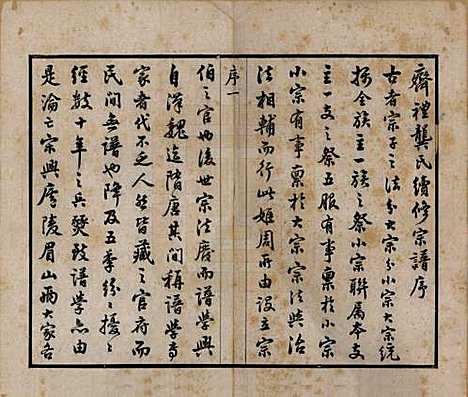 齊禮龔氏續修宗譜序
古者宗子之法分大宗分小宗大宗統
揚全族主一族之祭小宗聯屬本支
主一支之祭五服有事禀於小宗
小宗有事禀於大宗宗法與治
法相輔而行此姬周所由設立宗
序一
伯之官也後世宗法廢而譜學興
自漢魏迄隋唐其間稱譜學專
家者代不乏人然皆藏之官府而
民間無譜也降及五季紛紛擾擾
經數十年之兵燹致譜學亦由
是淪亡宗興廬陵眉山兩大家各